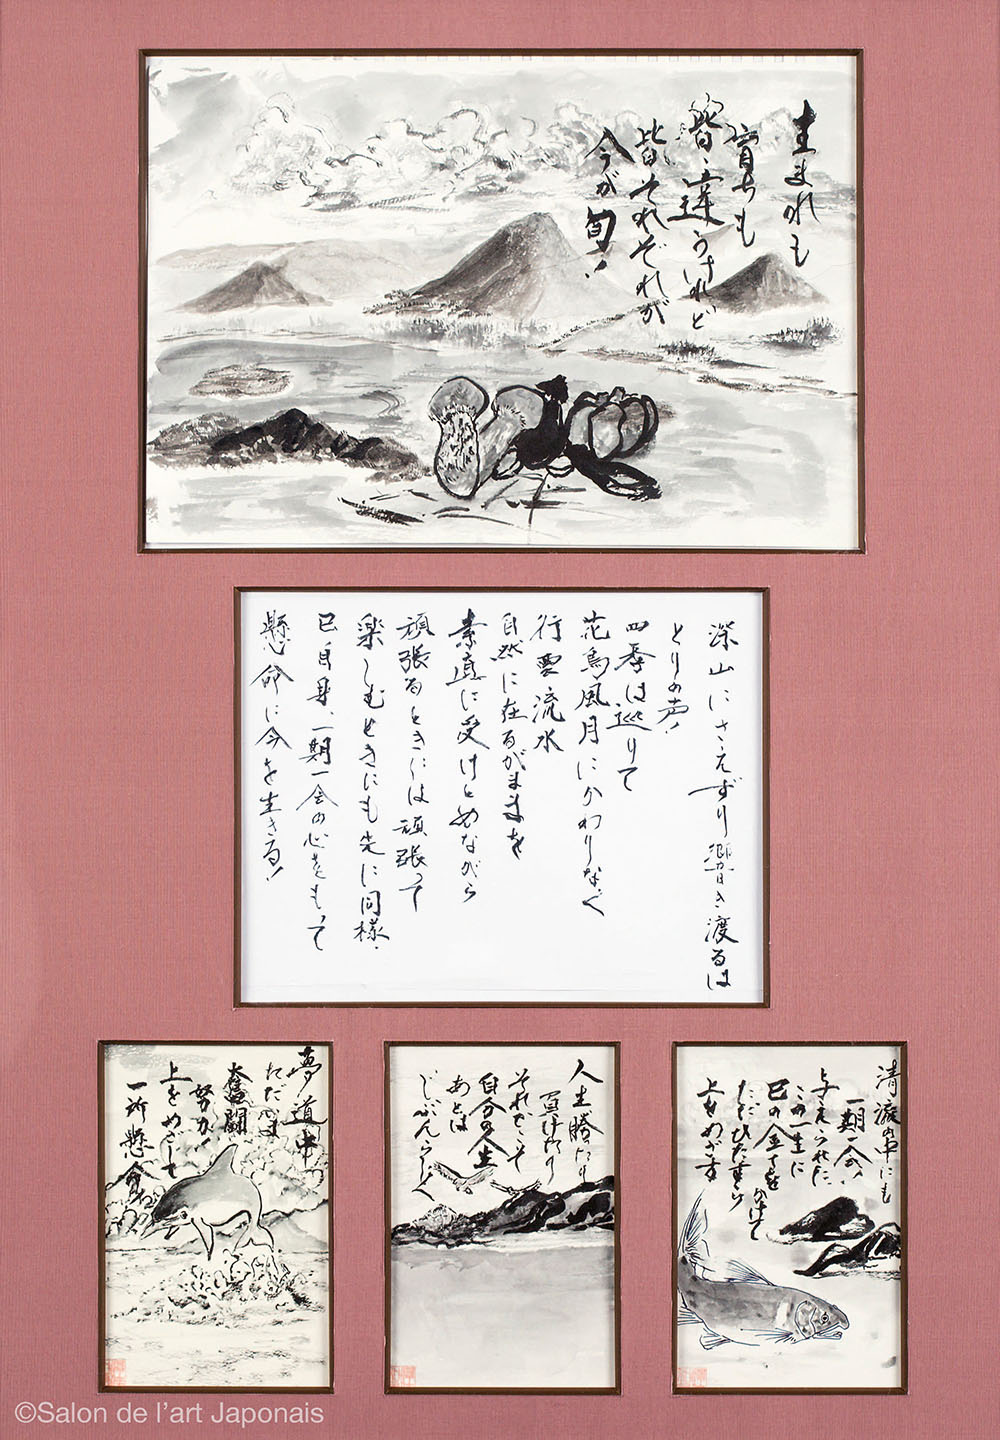 生まれも
育ちも
皆、違うけれど
皆それぞれが
今が旬!
深山にさえずり響き渡るは
とりの声!
四季は巡りて
花鳥風月にかわりなく
行雲流水
自然に在るがままを
素直に受けとめながら
頑張るときには頑張って
楽しむときにも先に同様、
己自身、一期一会の心をもって
懸命に今を生きる!
夢道中
ただ今
奮闘
努力!
上をめざして
一所懸命
人生勝たり
負けたり
それでこそ
自分の人生
あとは
じぶんらしく
清流の中にも
一期一会
与えられた
この一生に
己の全てをかけて
ただひたすら
上をめざす
©Salon de l'art Japonais